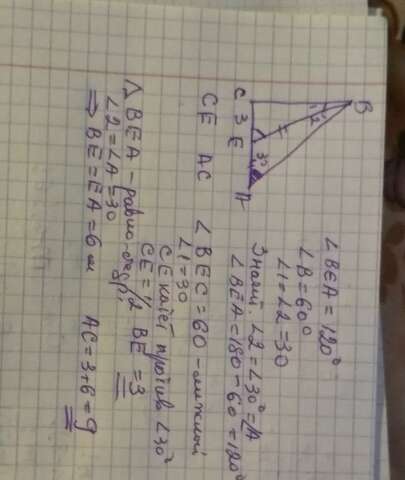 B
1 2
C 3 E 30 A
CE AC
∠BEA = 120°
∠B = 60°
∠1 = ∠2 = 30
∠2 = ∠30° = ∠A
∠BEA = 180 - 60 = 120°
∠BEC = 60 - смежный
∠1 = 30
CE катет против ∠30°
CE = 1/2 BE = 3
△BEA -
∠2 = ∠A = 30
⇒ BE = EA = 6 см AC = 3 + 6 = 9